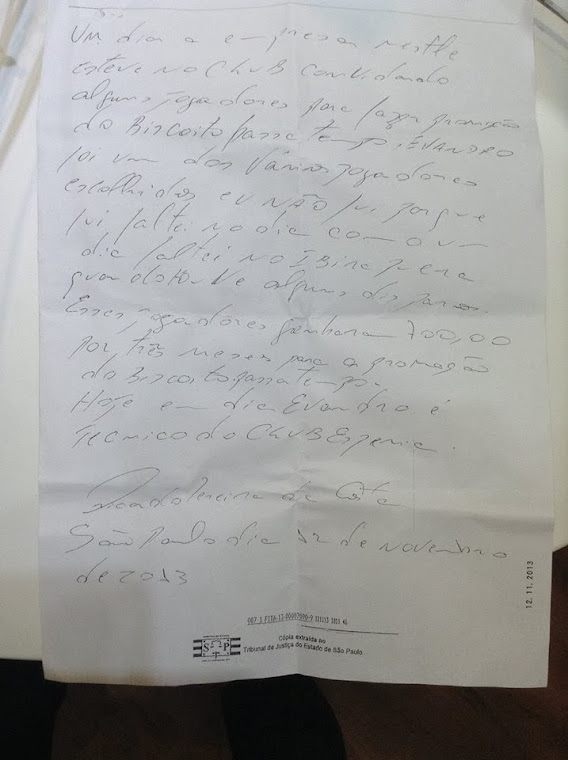 Um dia a empresa nestle
esteve no CLUB Convidando
alguns jogadores para fazer promoção
do Biscoito passa tempo, EVANDRO
foi um dos vários jogadores
escolhidos eu NÃO fui porque
fui faltei no dia como um
dia faltei no IBirapuera
quando houve alguns disparos.
Esses jogadores ganharam 700,00
por três meses para a promoção
do Biscoito passa tempo.
Hoje em dia Evandro é
Tecnico do CLUB Esperia.
Ricardo Pereira da Costa
São Paulo dia 12 de novembro
de 2013
12.11.2013
SP
Cópia extraída no
Tribunal de Justiça do Estado de São Paulo